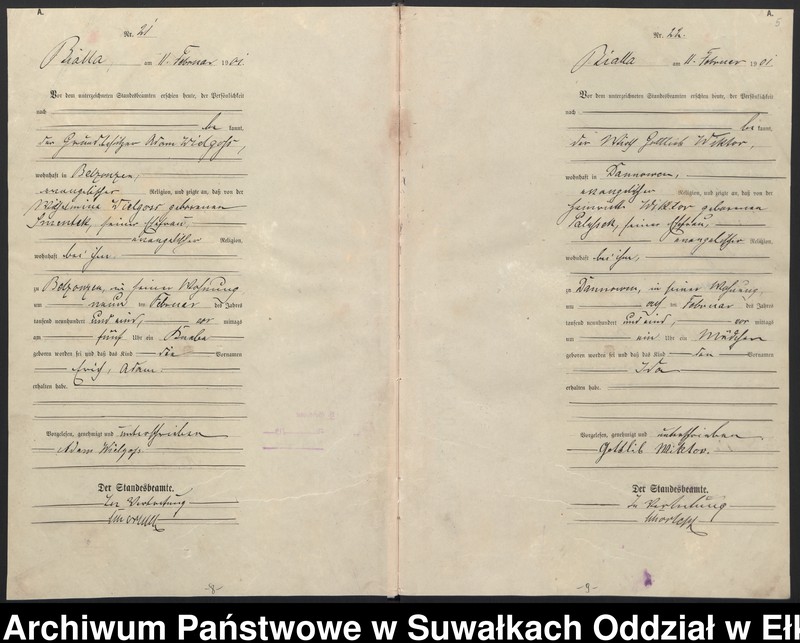 A.
Nr. 21
Bialla am 11. Februar 1901.
Vor dem unterzeichneten Standesbeamten erschien heute, der Persönlichkeit
nach
be kannt,
der Grundbesitzer Adam Wielgoss,
wohnhaft in Belzonzen,
evangelischer Religion, und zeigte an, daß von der
Wilhelmine Wielgoss geborenen
seiner Ehefrau,
evangelischer Religion,
wohnhaft bei ihm,
zu Belzonzen, in seiner Wohnung
am neun ten Februar des Jahres
tausend neunhundert und eins, vor mittags
um fünf Uhr ein Knabe
geboren worden sei und daß das Kind die Vornamen
Erich, Adam
erhalten habe.
Vorgelesen, genehmigt und unterschrieben
Adam Wielgoss.
Der Standesbeamte.
In Vertretung
-8-
A.
5
Nr. 22.
Bialla am 11. Februar 1901.
Vor dem unterzeichneten Standesbeamten erschien heute, der Persönlichkeit
nach
be kannt,
der Wirth Gottlieb Wiktor,
wohnhaft in Dannowen,
evangelischer Religion, und zeigte an, daß von der
Heinriette Wiktor geborenen
seiner Ehefrau,
evangelischer Religion,
wohnhaft bei ihm,
zu Dannowen, in seiner Wohnung,
am ten Februar des Jahres
tausend neunhundert und eins, vor mittags
um ein Uhr ein Mädchen
geboren worden sei und daß das Kind den Vornamen
Ida
erhalten habe.
Vorgelesen, genehmigt und unterschrieben
Gottlib Wiktor.
Der Standesbeamte.
In Vertretung
-9-
Archiwum Państwowe w Suwałkach Oddział w Eł